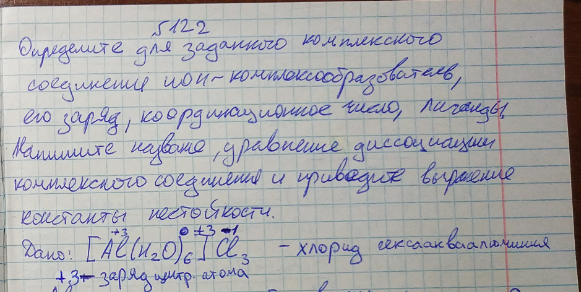 5122
Определите для заданного комплексного
соединения ион-комплексообразователь,
его заряд, координационное число, лиганды,
Напишите название, уравнение диссоциации
комплексного соединения и приведите выражение
константы нестойкости.
+3 0 +3 -1
Дано: [Al(H₂O)₆]Cl₃ - хлорид гексаакваалюминия
+3 - заряд центр. атома